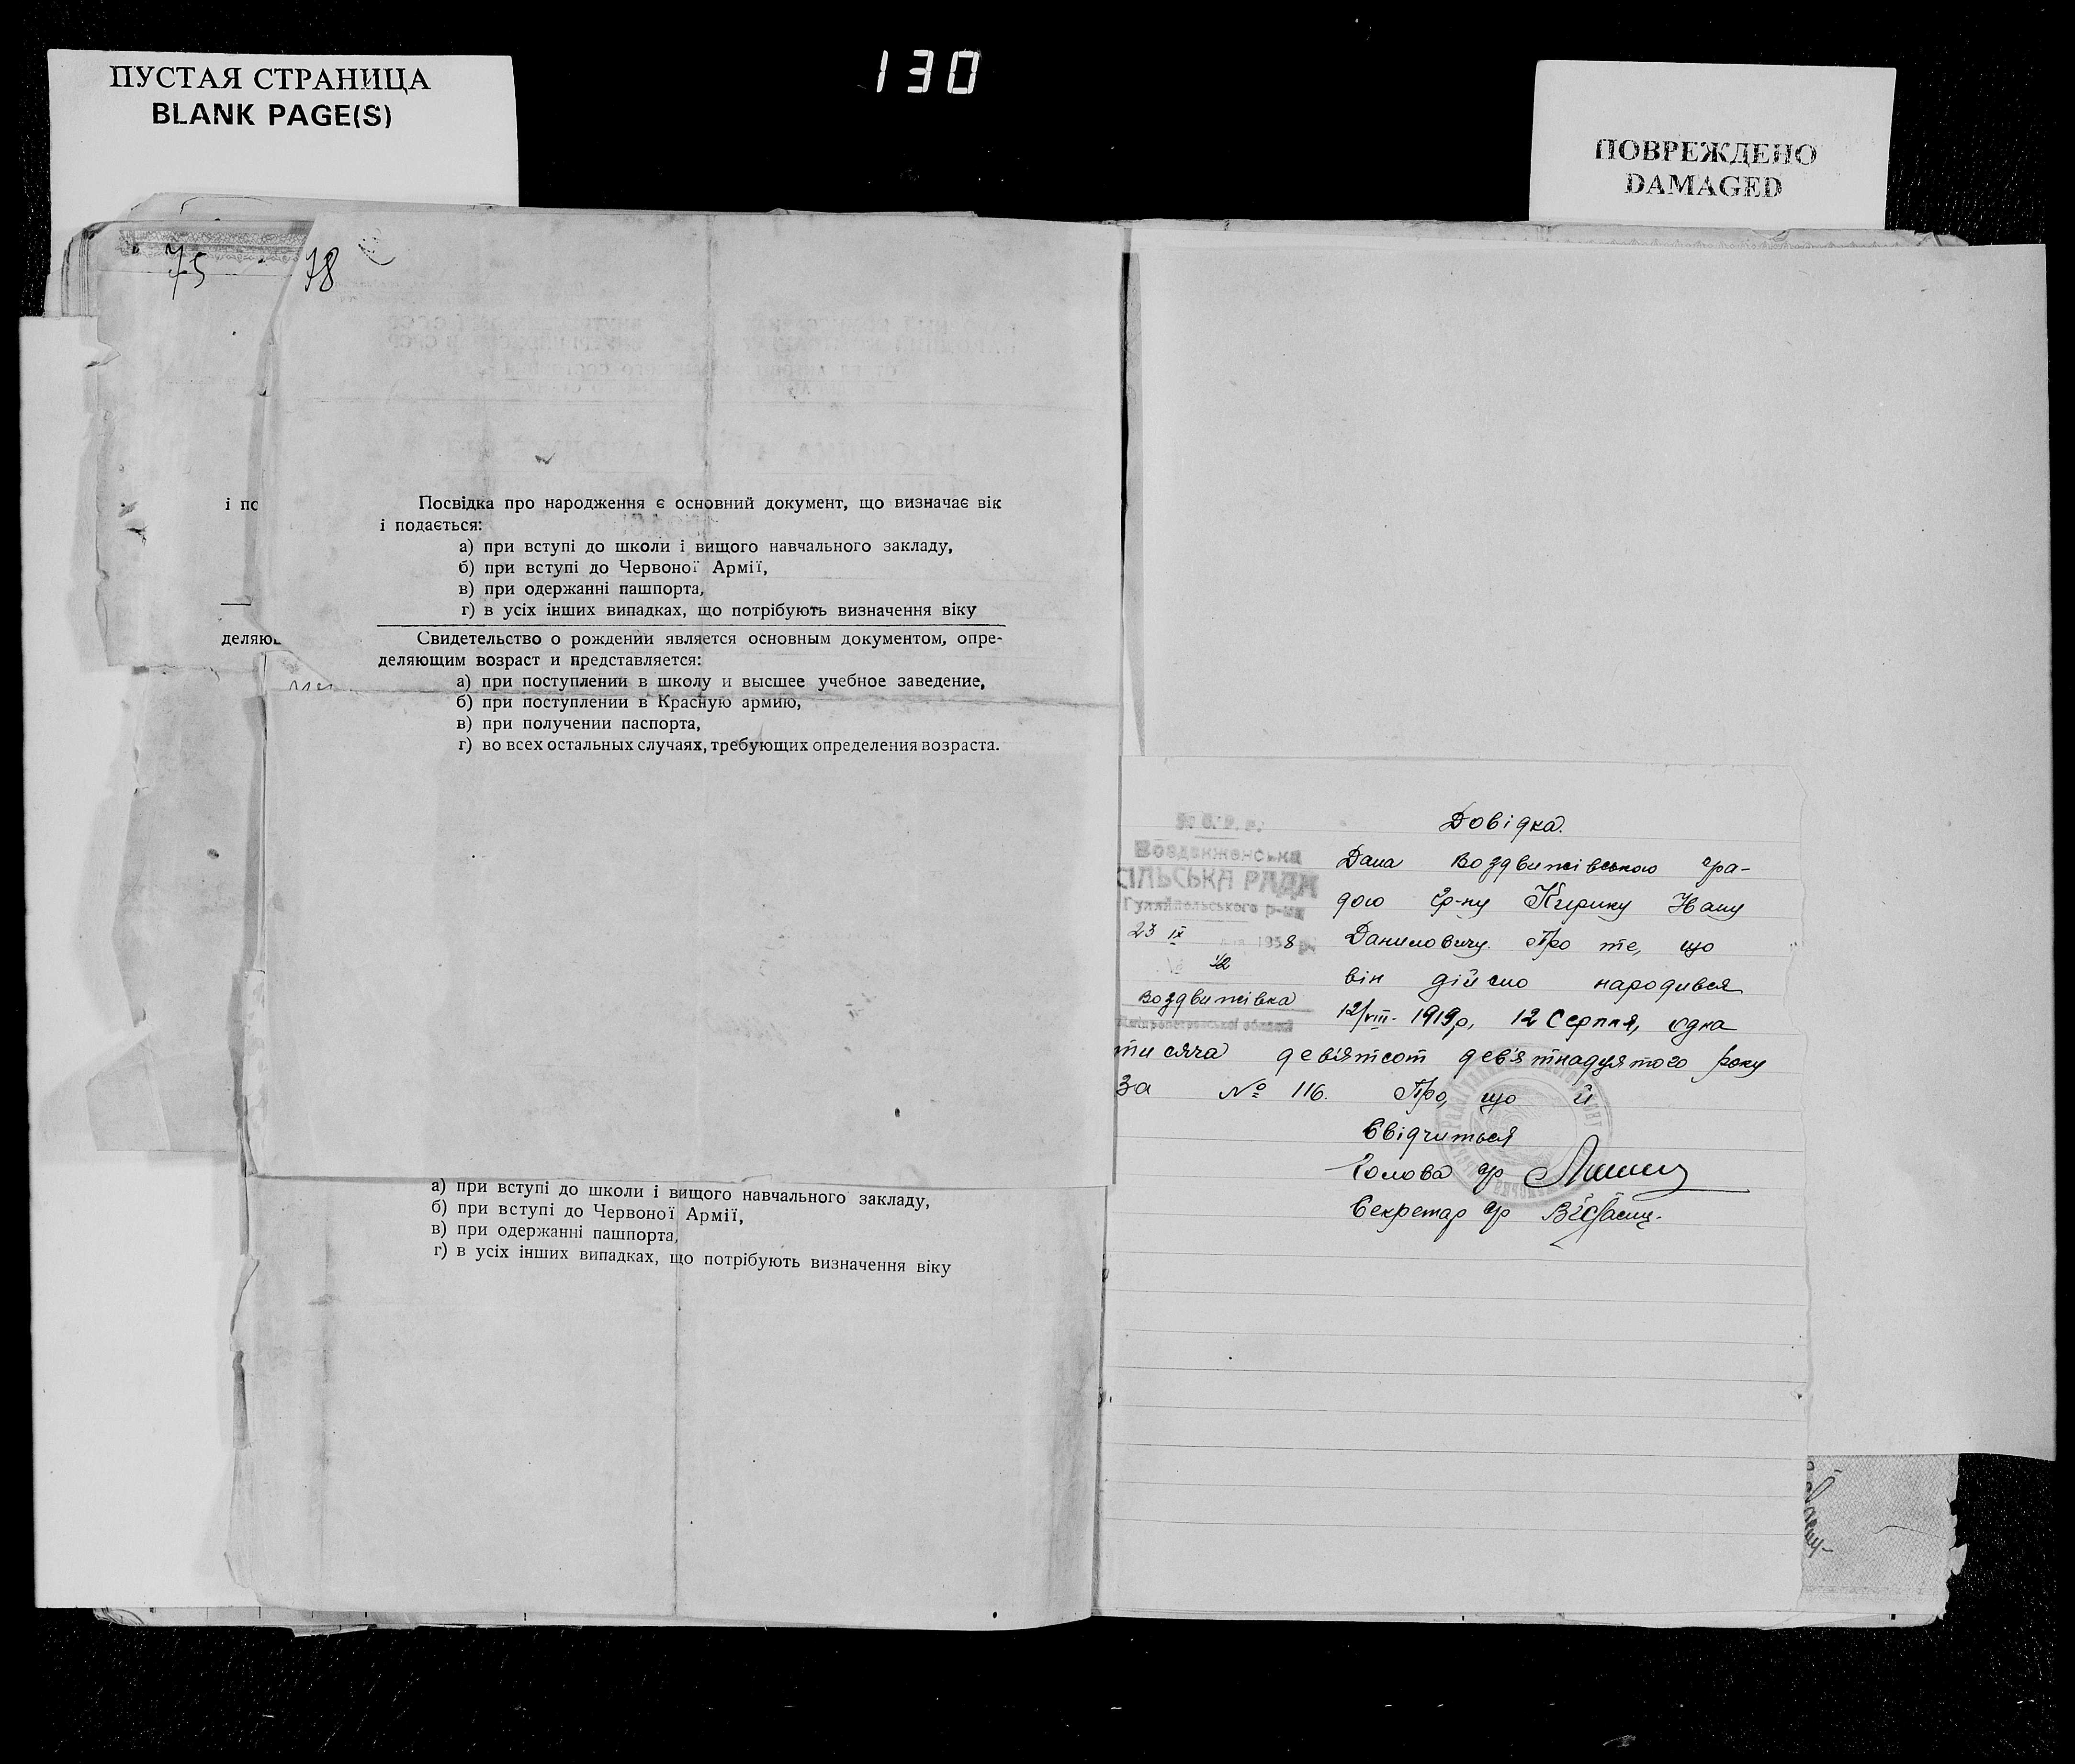 ПУСТАЯ СТРАНИЦА
BLANK PAGE(S)
130
ПОВРЕЖДЕНО
DAMAGED
75
78
і по
деляю
Посвідка про народження є основний документ, що визначає вік
і подається:
а) при вступі до школи і вищого навчального закладу,
б) при вступі до Червоної Армії,
в) при одержанні пашпорта,
г) в усіх інших випадках, що потрібують визначення віку
Свидетельство о рождении является основным документом, опре-
деляющим возраст и представляется:
а) при поступлении в школу и высшее учебное заведение,
б) при поступлении в Красную армию,
в) при получении паспорта,
г) во всех остальных случаях, требующих определения возраста.
а) при вступі до школи і вищого навчального закладу,
б) при вступі до Червоної Армії,
в) при одержанні пашпорта,
г) в усіх інших випадках, що потрібують визначення віку
Воздвиженська
СІЛЬСЬКА РАДА
Гуляйпольського р-на
23 ІХ 1938 р.
№ 42
Воздвижівка
Дніпропетровської області
Довідка.
Дана Воздвижівською с/ра-
дою гр-ну Кирику Івану
Даниловичу. Про те, що
він дійсно народився
12/VIII- 1919р, 12 Серпня, одна
тисяча девятсот дев'ятнадцятого року
За № 116. Про, що й
Свідчиться
Голова с/р
Секретар с/р